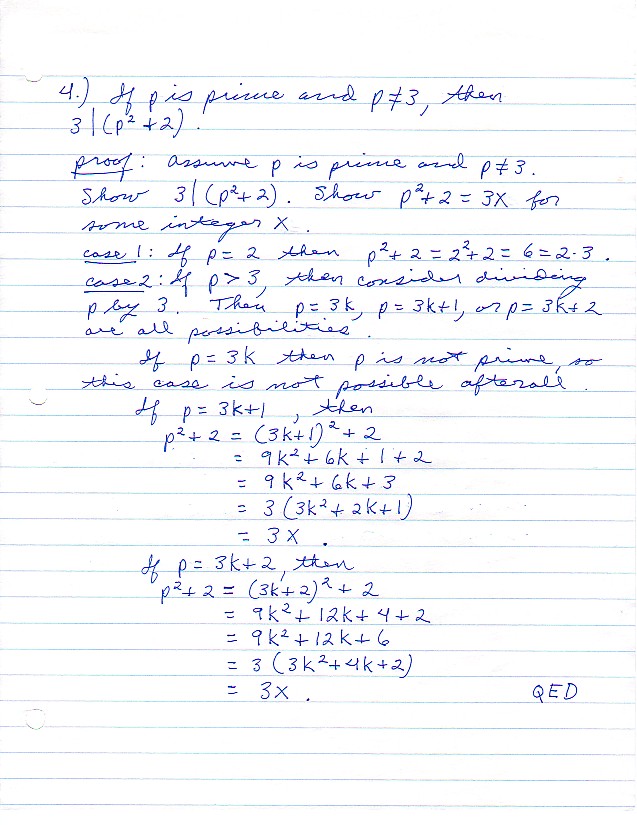 4.) If p is prime and p≠3, then
3 | (p² + 2).
proof: assume p is prime and p≠3.
Show 3 | (p²+2). Show p²+2 = 3x for
some integer x.
case 1: If p = 2 then p²+2 = 2²+2 = 6 = 2·3.
case 2: If p > 3, then consider dividing
p by 3. Then p = 3k, p = 3k+1, or p = 3k+2
are all possibilities.
If p = 3k then p is not prime, so
this case is not possible afterall.
If p = 3k+1, then
p²+2 = (3k+1)² + 2
= 9k² + 6k + 1 + 2
= 9k² + 6k + 3
= 3(3k² + 2k + 1)
= 3x.
If p = 3k+2, then
p²+2 = (3k+2)² + 2
= 9k² + 12k + 4 + 2
= 9k² + 12k + 6
= 3(3k² + 4k + 2)
= 3x. QED